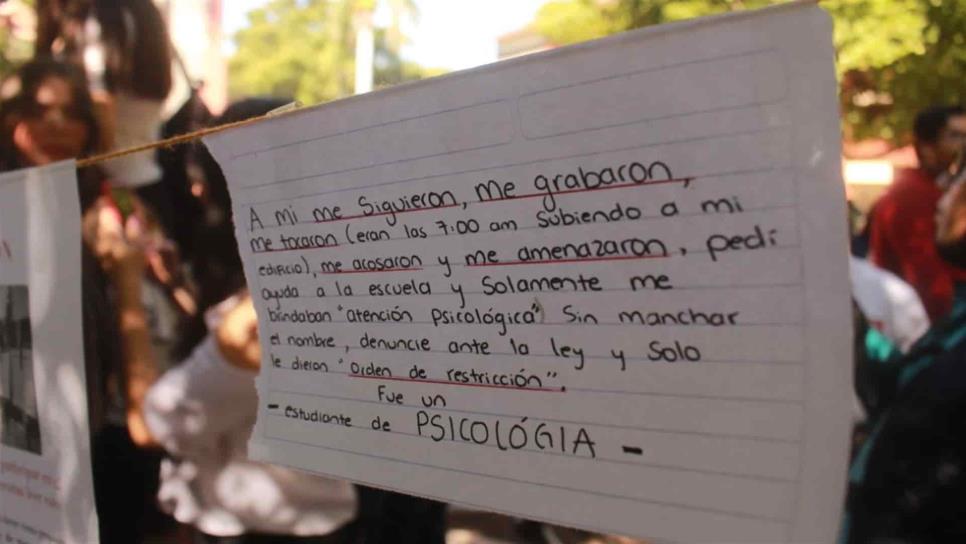 A mi me Siguieron, me grabaron,
me tocaron (eran las 7:00 am Subiendo a mi
edificio), me acosaron y me amenazaron, pedi
ayuda a la escuela y Solamente me
brindaban "atención psicológica" Sin manchar
el nombre, denuncie ante la ley y Solo
le dieron "Orden de restricción".
Fue un
- estudiante de PSICOLÓGIA -